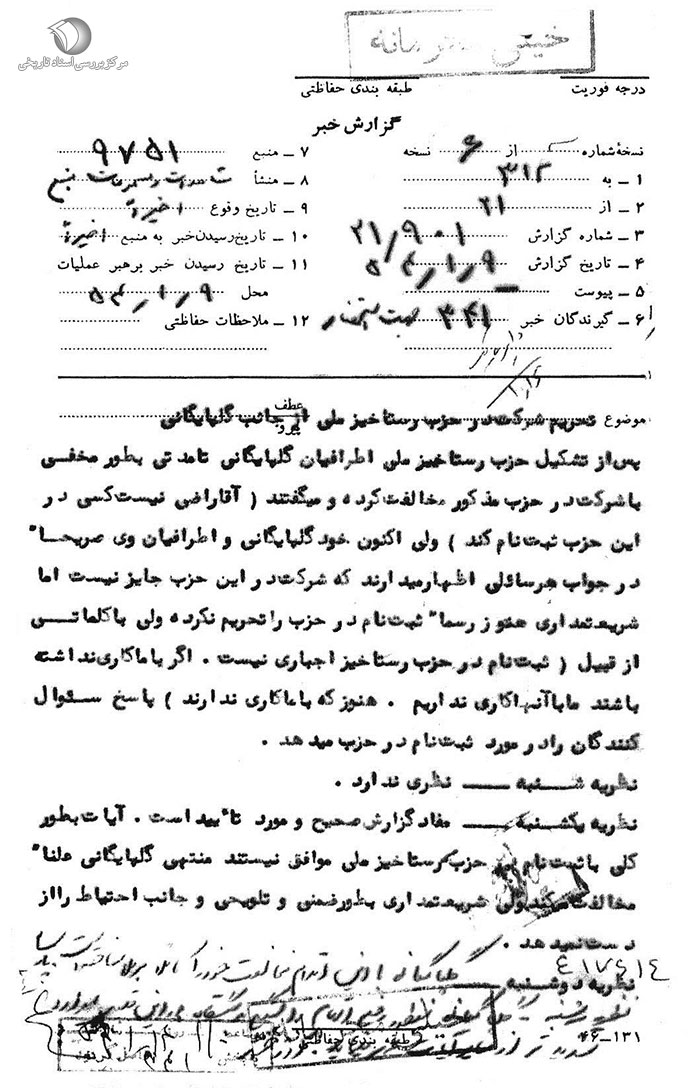 مرکز بررسی اسناد تاریخی
خیلی محرمانه
درجه فوریت طبقه بندی حفاظتی
گزارش خبر
نسخهٔ شماره از ۶ نسخه
۷ ــ منبع ۹۷۵۱
۱ ــ به ۳۱۲
۸ ــ منشأ
۲ ــ از ۲۱
۹ ــ تاریخ وقوع اخیراً
۳ ــ شماره گزارش ۲۱/۹۰۱
۱۰ ــ تاریخ رسیدن خبر به منبع اخیراً
۴ ــ تاریخ گزارش ۵۴/۱/۹
۱۱ ــ تاریخ رسیدن خبر برهبر عملیات
۵ ــ پیوست
محل ۵۴/۱/۹
۶ ــ گیرندگان خبر ۳۴۱ جهت استحضار
۱۲ ــ ملاحظات حفاظتی
موضوع تحریم شرکت در حزب رستاخیز ملی از جانب گلپایگانی
عطف
پیرو
پس از تشکیل حزب رستاخیز ملی اطرافیان گلپایگانی تا مدتی بطور مخفی
با شرکت در حزب مذکور مخالفت کرده و میگفتند ( آقا راضی نیست کسی در
این حزب ثبت نام کند ) ولی اکنون خود گلپایگانی و اطرافیان وی صریحا"
در جواب هر سائلی اظهار میدارند که شرکت در این حزب جایز نیست اما
شریعتمداری هنوز رسما" ثبت نام در حزب را تحریم نکرده ولی با کلماتی
از قبیل ( ثبت نام در حزب رستاخیز اجباری نیست . اگر با ما کاری نداشته
باشند ما با آنها کاری نداریم . هنوز که با ما کاری ندارند ) پاسخ سئوال
کنندگان را در مورد ثبت نام در حزب میدهد .
نظریه شنبه ــ نظری ندارد .
نظریه یکشنبه ــ مفاد گزارش صحیح و مورد تا"یید است . آیات بطور
کلی با ثبت نام در حزب رستاخیز ملی موافق نیستند منتهی گلپایگانی علنا"
مخالفت میکند ولی شریعتمداری بطور ضمنی و تلویحی و جانب احتیاط را از
دست نمیدهد .
نظریه دوشنبه
طبقه بندی حفاظتی
۴۶ــ۱۳۱